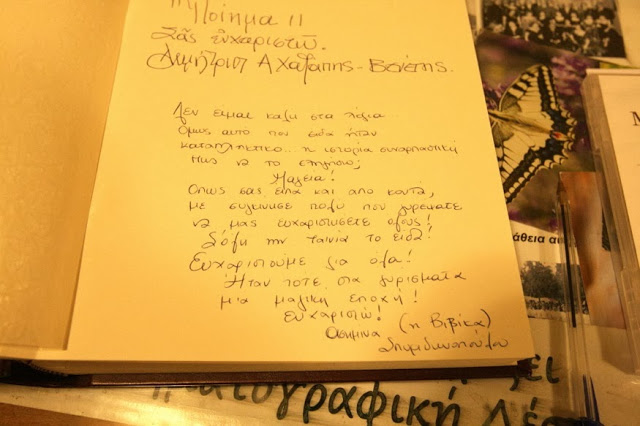 "Ποίημα"
Σᾶς εὐχαριστῶ.
Δημήτρης
Δεν είμαι καλή στα λόγια...
Όμως αυτό που είδα ήταν
καταπληκτικό... η ιστορία συναρπαστική
πως να το εξηγήσω;
Μαγεία!
Όπως σας είπα και από κοντά,
με συγκίνησε πολύ που γυρέψατε
να μας ευχαριστήσετε όλους!
Σ' όλη την ταινία το είδα!
Ευχαριστούμε για όλα!
Ήταν τότε στα γυρίσματα
μια μαγική εποχή!
Ευχαριστώ!
Ασημίνα (η Βιβίκα)
άθεια
Μ
ει
τογραφική Λέσ